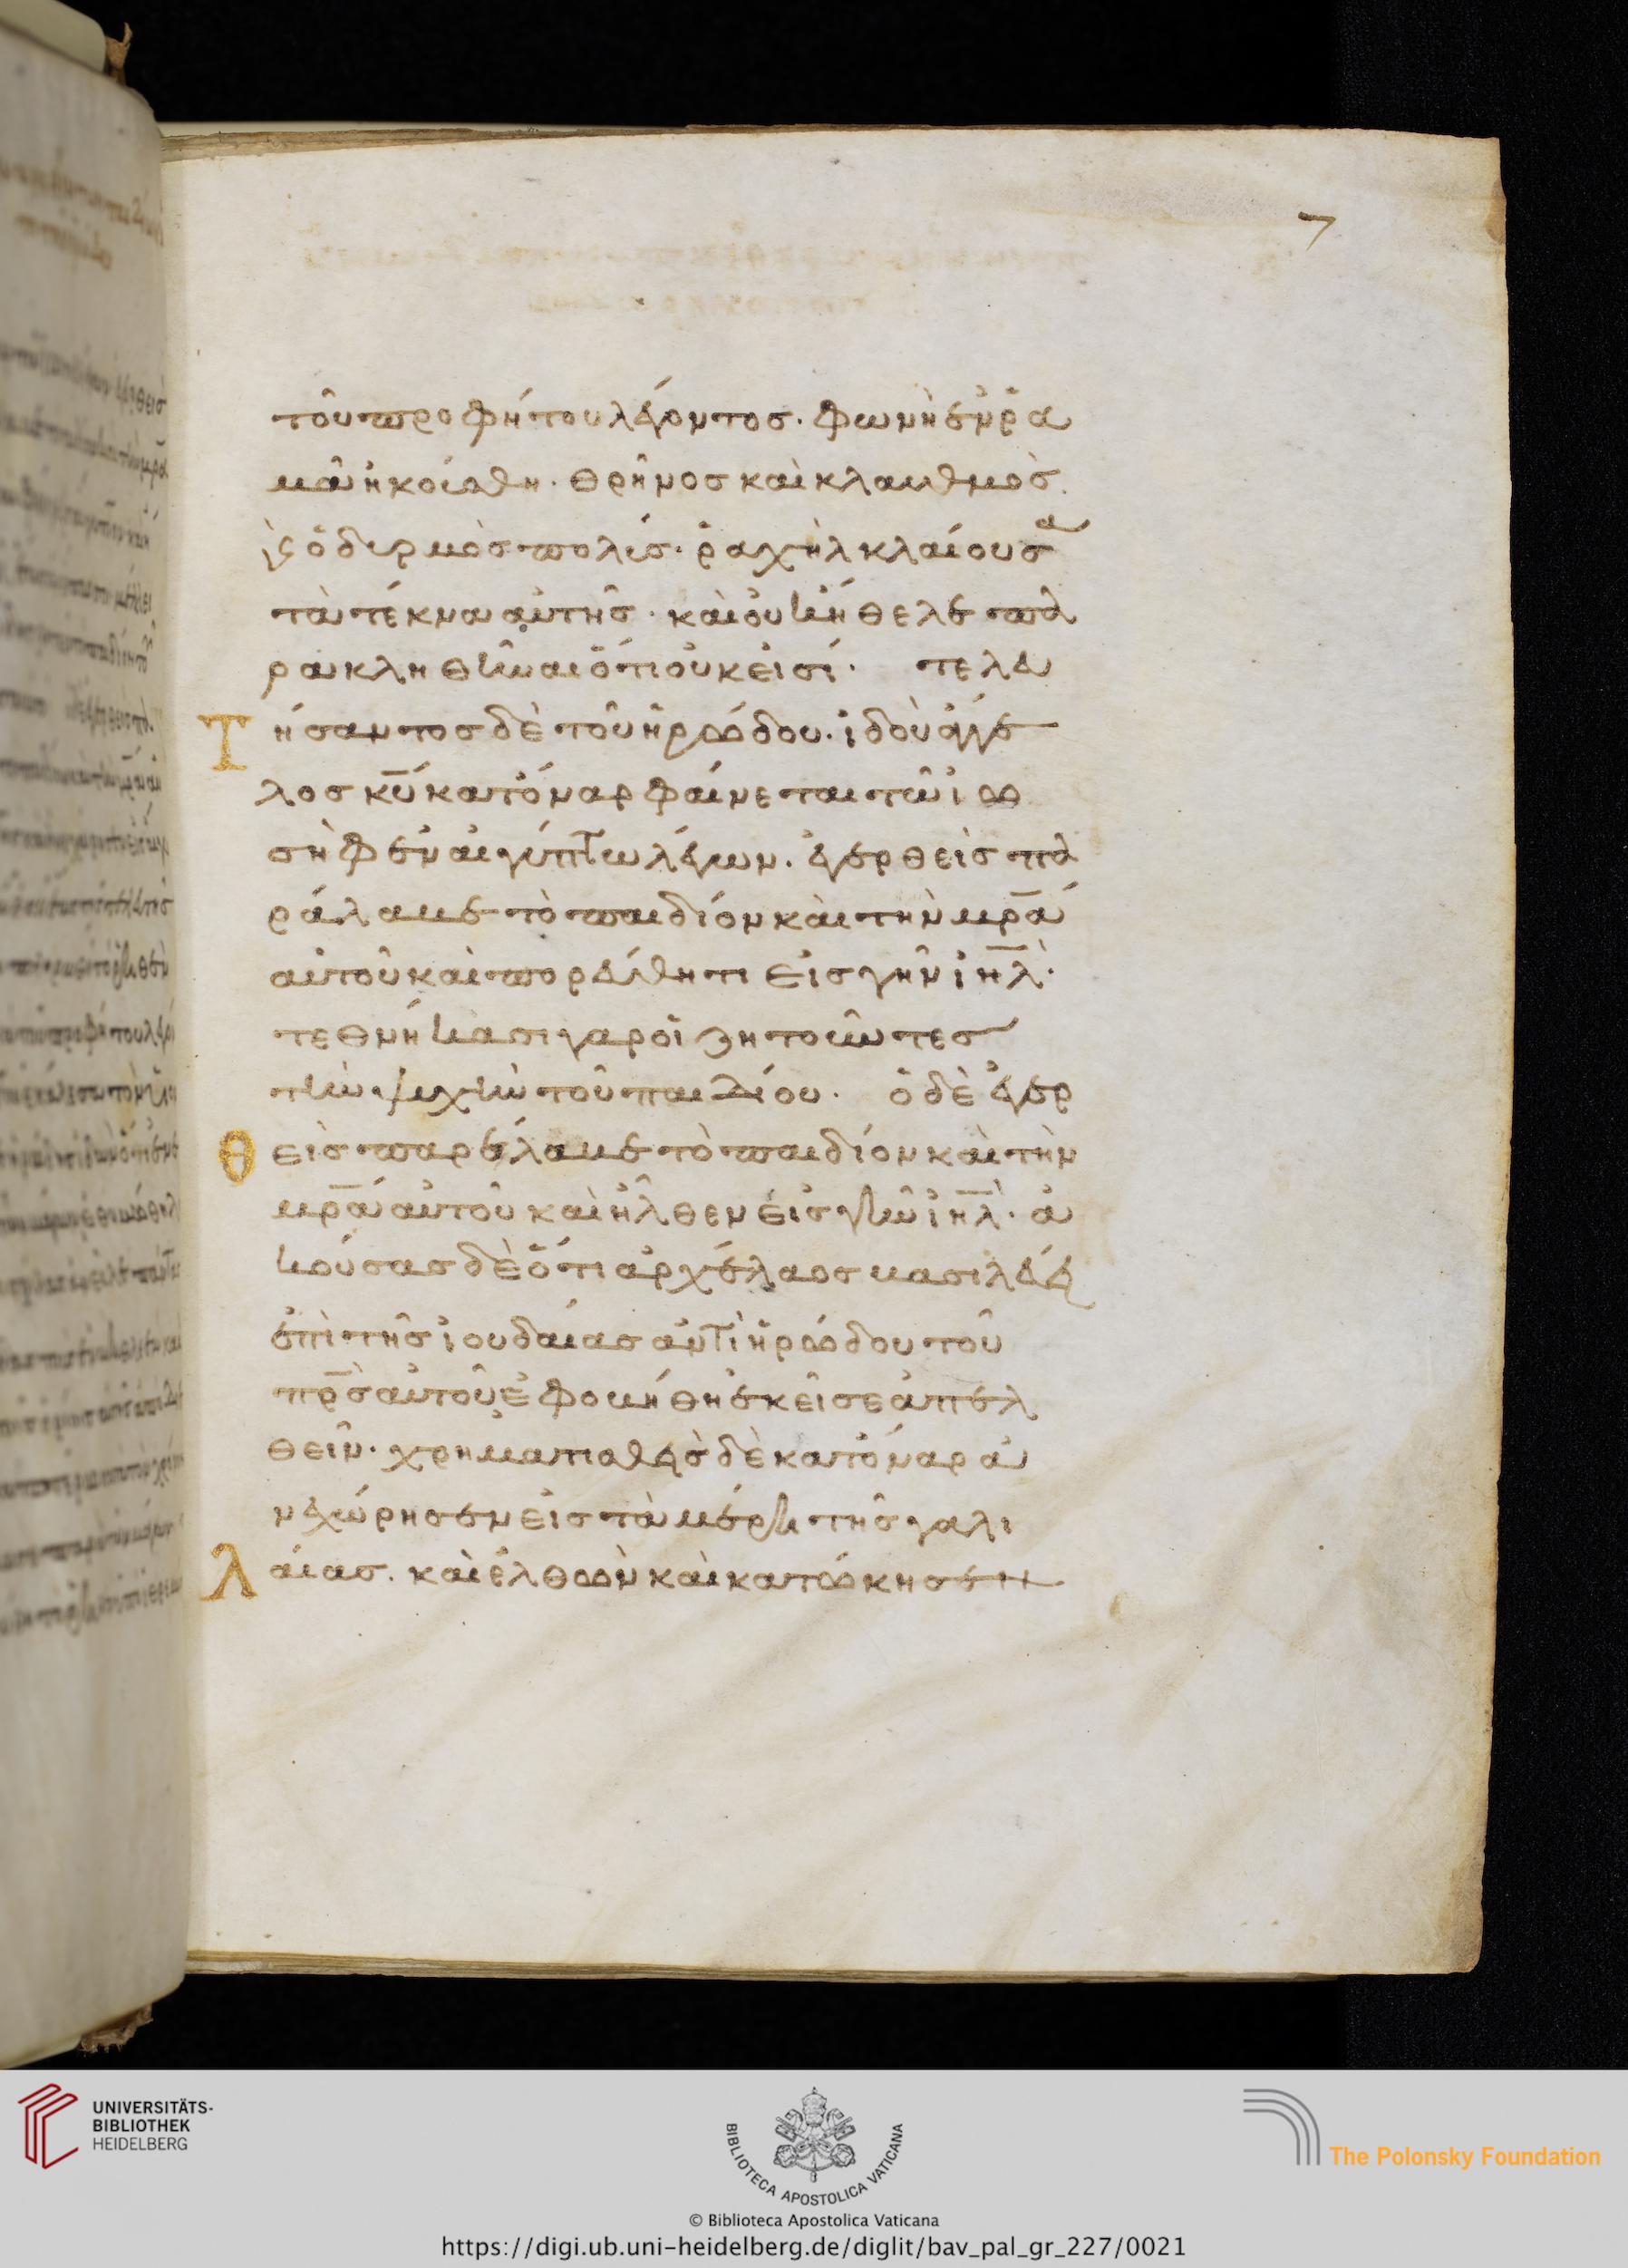 7
τοῦ προφήτου λέγοντος· φωνὴ ἐν ῥα
μᾶ ἠκούσθη· θρῆνος καὶ κλαυθμὸς
κ(αὶ) ὀδυρμὸς πολύς· ῥαχὴλ κλαίουσα
τὰ τέκνα αὐτῆς· καὶ οὐκ ἤθελε πα
ρακληθῆναι ὅτι οὐκ εἰσί· τελευ
Τήσαντος δὲ τοῦ ἡρώδου· ἰδοὺ ἄγγε
λος κ̅υ̅ κατ' ὄναρ φαίνεται τῶ ἰω
σὴφ ἐν αἰγύπτω λέγων· ἐγερθεὶς πα
ράλαβε τὸ παιδίον καὶ τὴν μ̅ρ̅α̅
αὐτοῦ καὶ πορεύθητι εἰς γῆν ἰ̅η̅λ̅·
τεθνήκασι γὰρ οἱ ζητοῦντες
τὴν ψυχὴν τοῦ παιδίου· ὁ δὲ ἐγερ
Θεὶς παρέλαβε τὸ παιδίον καὶ τὴν
μ̅ρ̅α̅ αὐτοῦ καὶ ἦλθεν εἰς γῆν ἰ̅η̅λ̅· ἀ
κούσας δὲ ὅτι ἀρχέλαος βασιλεύει
ἐπὶ τῆς ἰουδαίας ἀντὶ ἡρώδου τοῦ
π̅ρ̅σ̅ αὐτοῦ ἐφοβήθη ἐκεῖσε ἀπελ
θεῖν· χρηματισθεὶς δὲ κατ' ὄναρ ἀ
νεχώρησεν εἰς τὰ μέρη τῆς γαλι
Λαίας· καὶ ἐλθὼν καὶ κατώκησεν
UNIVERSITÄTS-
BIBLIOTHEK
HEIDELBERG
BIBLIOTECA APOSTOLICA VATICANA
The Polonsky Foundation
© Biblioteca Apostolica Vaticana
https://digi.ub.uni-heidelberg.de/diglit/bav_pal_gr_227/0021